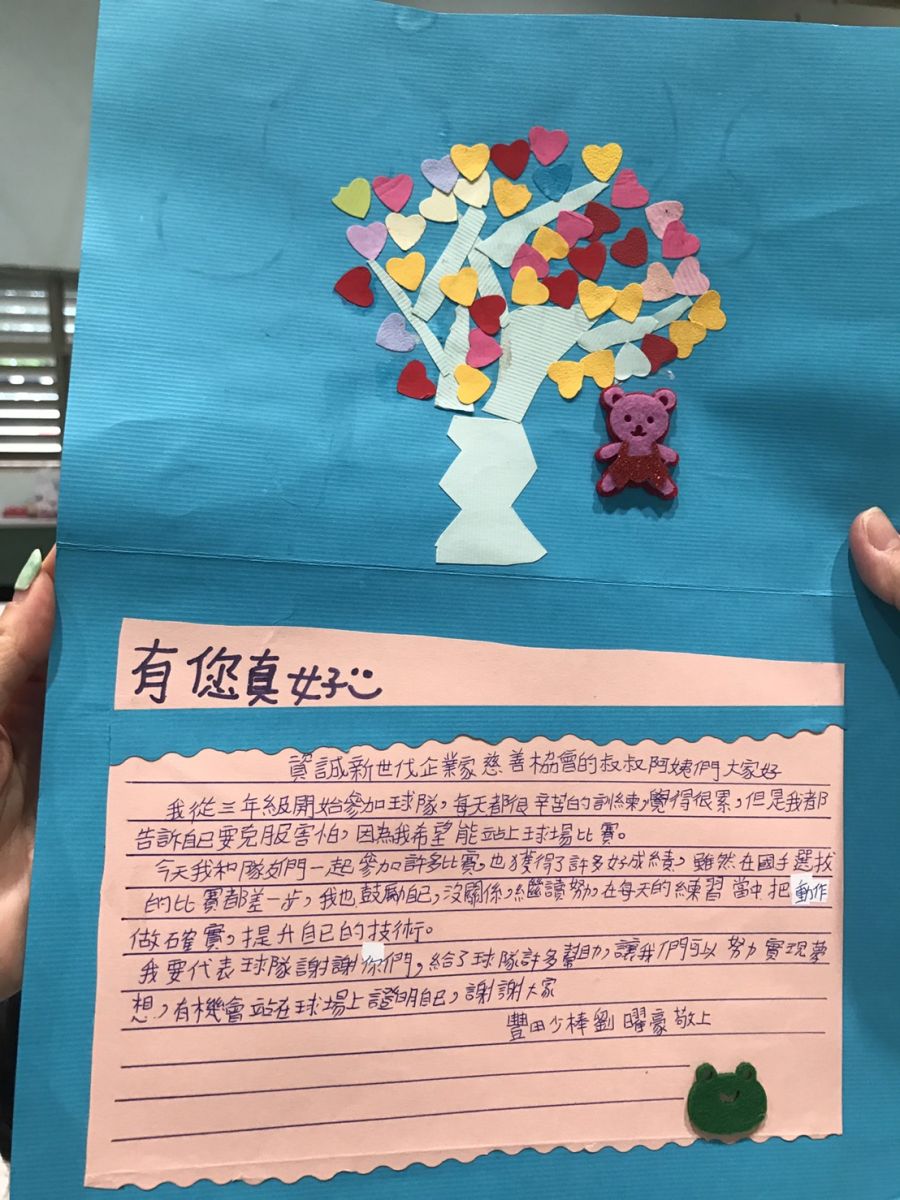 有您真好
資誠新世代企業家慈善協會的叔叔阿姨們大家好
我從三年級開始參加球隊，每天都很辛苦的訓練，覺得很累，但是我都
告訴自己要克服害怕，因為我希望能站上球場比賽。
今天我和隊友們一起參加許多比賽，也獲得了許多好成績，雖然在國手選拔
的比賽都差一步，我也鼓勵自己，沒關係，繼讀努，在每天的練習當中把動作
做確實，提升自己的技術。
我要代表球隊謝謝你們，給了球隊許多幫助，讓我們可以努力實現夢
想，有機會站在球場上證明自己，謝謝大家
豐田少棒劉曜豪敬上